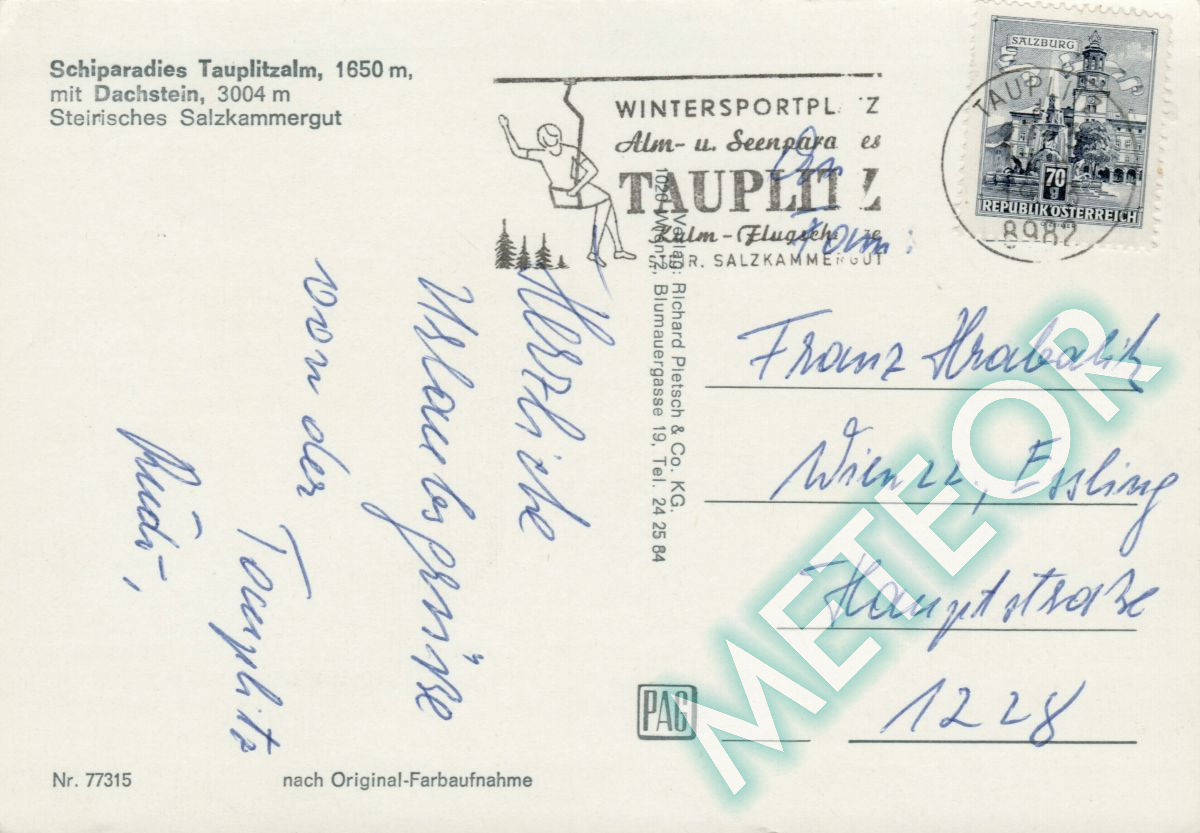 Schiparadies Tauplitzalm, 1650 m,
mit Dachstein, 3004 m
Steirisches Salzkammergut
WINTERSPORTPL TZ
Alm- u. Seenpara es
TAUPLITZ
Kulm-Flugsch ze
R. SALZKAMMERGUT
SALZBURG
70
g
REPUBLIK ÖSTERREICH
TAUPLITZ
8982
An
Fam.
Franz Hrabalik
Wien 22, Essling
Hauptstraße
1228
Herzliche
Urlaubsgrüße
von der
Tauplitz
Rudi,
Verlag: Richard Pietsch & Co. KG.
1020 Wien 2, Blumauergasse 19, Tel. 24 25 84
PAG
METEOR
Nr. 77315
nach Original-Farbaufnahme